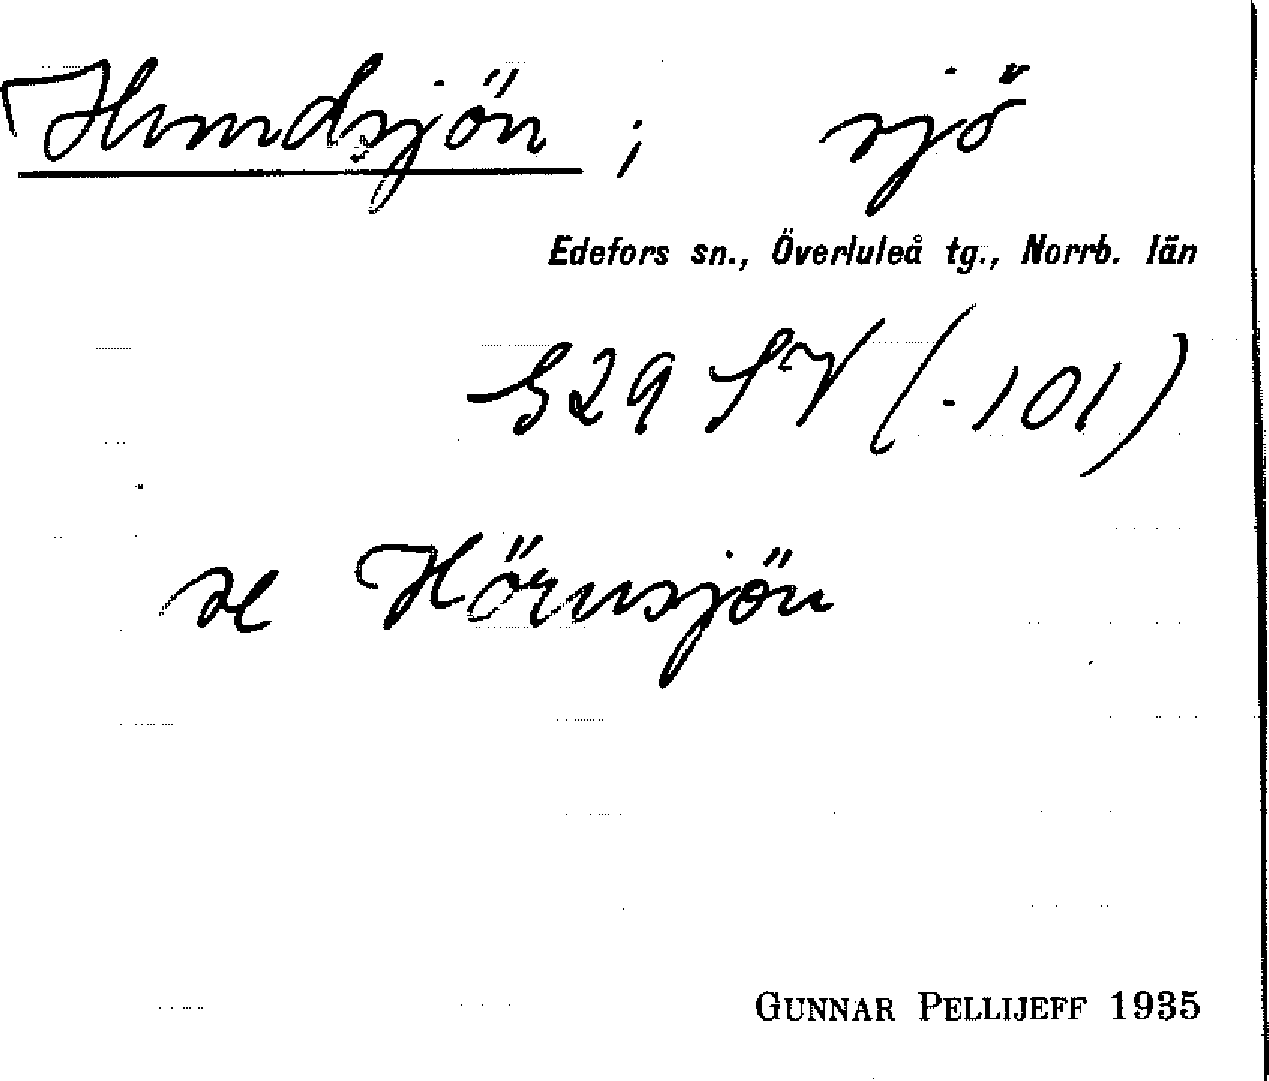 Hundsjön ; sjö
Edefors sn., Överluleå tg., Norrb. län
529 SV (-101)
se Hörnsjön
GUNNAR PELLIJEFF 1935